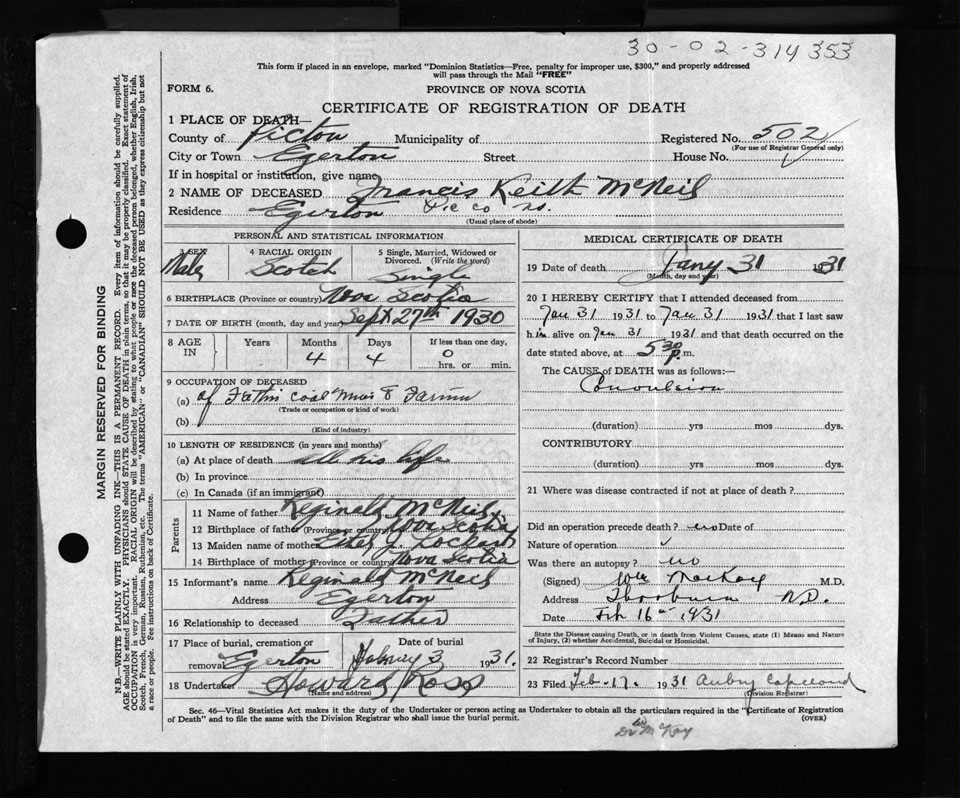 30-02-314353
This form if placed in an envelope, marked "Dominion Statistics—Free, penalty for improper use, $300," and properly addressed
will pass through the Mail "FREE"
FORM 6.
PROVINCE OF NOVA SCOTIA
CERTIFICATE OF REGISTRATION OF DEATH
1 PLACE OF DEATH—
County of Pictou Municipality of Registered No. 502
(For use of Registrar General only)
City or Town Egerton Street House No.
If in hospital or institution, give name
2 NAME OF DECEASED Francis Keith McNeil
Residence Egerton Pic co NS.
(Usual place of abode)
PERSONAL AND STATISTICAL INFORMATION
3 SEX Male
4 RACIAL ORIGIN Scotch
5 Single, Married, Widowed or Divorced. (Write the word) Single
6 BIRTHPLACE (Province or country) Nova Scotia
7 DATE OF BIRTH (month, day and year) Sept 27th 1930
8 AGE IN Years Months 4 Days 4 If less than one day, 0 hrs. or min.
9 OCCUPATION OF DECEASED
(a) of Father coal Miner & Farmer
(Trade or occupation or kind of work)
(b)
(Kind of industry)
10 LENGTH OF RESIDENCE (in years and months)
(a) At place of death all his life
(b) In province
(c) In Canada (if an immigrant)
Parents
11 Name of father Reginald McNeil
12 Birthplace of father (Province or country) Nova Scotia
13 Maiden name of mother Ethel J. Lockart
14 Birthplace of mother (Province or country) Nova Scotia
15 Informant's name Reginald McNeil
Address Egerton
16 Relationship to deceased Father
17 Place of burial, cremation or removal Egerton Date of burial 3 1931.
18 Undertaker Howard Ross
(Name and address)
MEDICAL CERTIFICATE OF DEATH
19 Date of death Jany 31 1931
(Month, day and year)
20 I HEREBY CERTIFY that I attended deceased from
Jan 31 1931 to Jan 31 1931 that I last saw
h im alive on Jan 31 1931 and that death occurred on
date stated above, at 5 30 p.m.
The CAUSE of DEATH was as follows:—
Convulsion
(duration) yrs mos dys.
CONTRIBUTORY
(duration) yrs mos dys.
21 Where was disease contracted if not at place of death?
Did an operation precede death? no Date of
Nature of operation
Was there an autopsy? no
(Signed) Wm MacKay M.D.
Address Thorburn N.S.
Date Feb 16th 1931
State the Disease causing Death, or in death from Violent Causes, state (1) Means and Nature
of Injury, (2) whether Accidental, Suicidal or Homicidal.
22 Registrar's Record Number
23 Filed Feb. 17. 1931 Aubry Copeland
(Division Registrar)
Sec. 46—Vital Statistics Act makes it the duty of the Undertaker or person acting as Undertaker to obtain all the particulars required in the "Certificate of Registration
of Death" and to file the same with the Division Registrar who shall issue the burial permit.
(OVER)
Dr W McKay
MARGIN RESERVED FOR BINDING
N.B.—WRITE PLAINLY WITH UNFADING INK—THIS IS A PERMANENT RECORD. Every item of information should be carefully supplied.
AGE should be stated EXACTLY. PHYSICIANS should STATE CAUSE OF DEATH in plain terms, so that it may be properly classified. Exact statement of
OCCUPATION is very important. RACIAL ORIGIN will be described by stating to what people or race the deceased person belonged, whether English, Irish,
Scotch, French, German, Russian, Ruthenian, etc. The terms "AMERICAN" or "CANADIAN" SHOULD NOT BE USED as they express citizenship but not
a race or people. See instructions on back of Certificate.